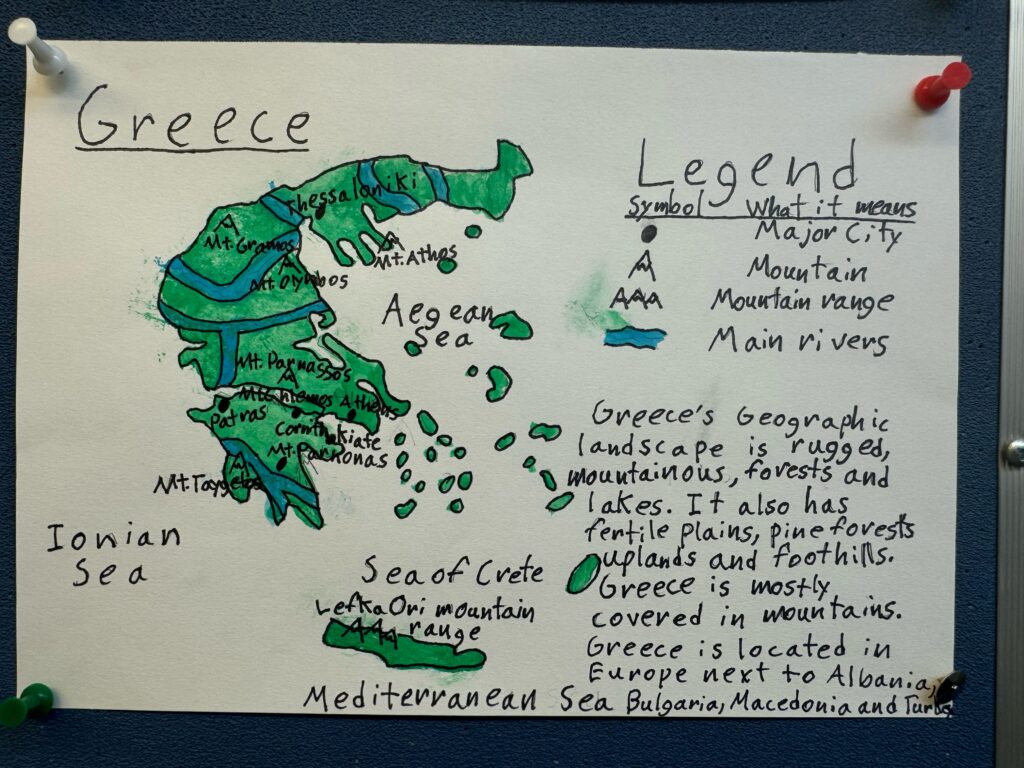 Greece
Legend
Symbol What it means
Major City
Mountain
Mountain range
Main rivers
Thessaloniki
Mt. Gramos
Mt. Athos
Mt. Olymbos
Aegean
Sea
Mt. Parnassos
Athens
Patras
Corinth
Mt. Parnonas
Mt. Taygetos
Ionian
Sea
Sea of Crete
Lefka Ori mountain
range
Mediterranean Sea
Greece's Geographic
landscape is rugged,
mountainous, forests and
lakes. It also has
fertile plains, pine forests
uplands and foothills.
Greece is mostly
covered in mountains.
Greece is located in
Europe next to Albania,
Bulgaria, Macedonia and